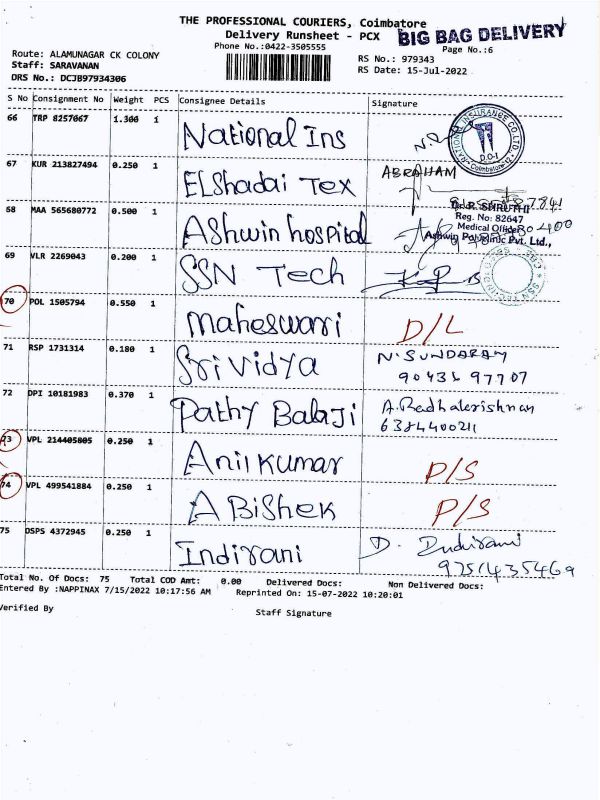 THE PROFESSIONAL COURIERS, Coimbatore
Delivery Runsheet - PCX
BIG BAG DELIVERY
Phone No.:0422-3505555
Page No.:6
Route: ALAMUNAGAR CK COLONY
Staff: SARAVANAN
DRS No.: DCJB97934306
RS No.: 979343
RS Date: 15-Jul-2022
S No Consignment No Weight PCS Consignee Details Signature
66 TRP 8257067 1.300 1 National Ins
67 KUR 213827494 0.250 1 Elshadai Tex ABRAHAM
68 MAA 565680772 0.500 1 Ashwin hospital
Dr. R. SHRUTHI
Reg. No: 82647
Medical Officer
Ashwin Polyclinic Pvt. Ltd.,
69 VLR 2269043 0.200 1 SSN Tech
70 POL 1505794 0.550 1 Maheswari D/L
71 RSP 1731314 0.180 1 Sri Vidya N. SUNDARAM
90436 97707
72 DPI 10181983 0.370 1 Pathy Balaji A. Radhakrishnan
6384400211
73 VPL 214405805 0.250 1 Anil Kumar P/S
74 VPL 499541884 0.250 1 A Bishek P/S
75 DSPS 4372945 0.250 1 Indirani D. Indirani
9751435469
Total No. Of Docs: 75 Total COD Amt: 0.00 Delivered Docs: Non Delivered Docs:
Entered By :NAPPINAX 7/15/2022 10:17:56 AM Reprinted On: 15-07-2022 10:20:01
Verified By Staff Signature